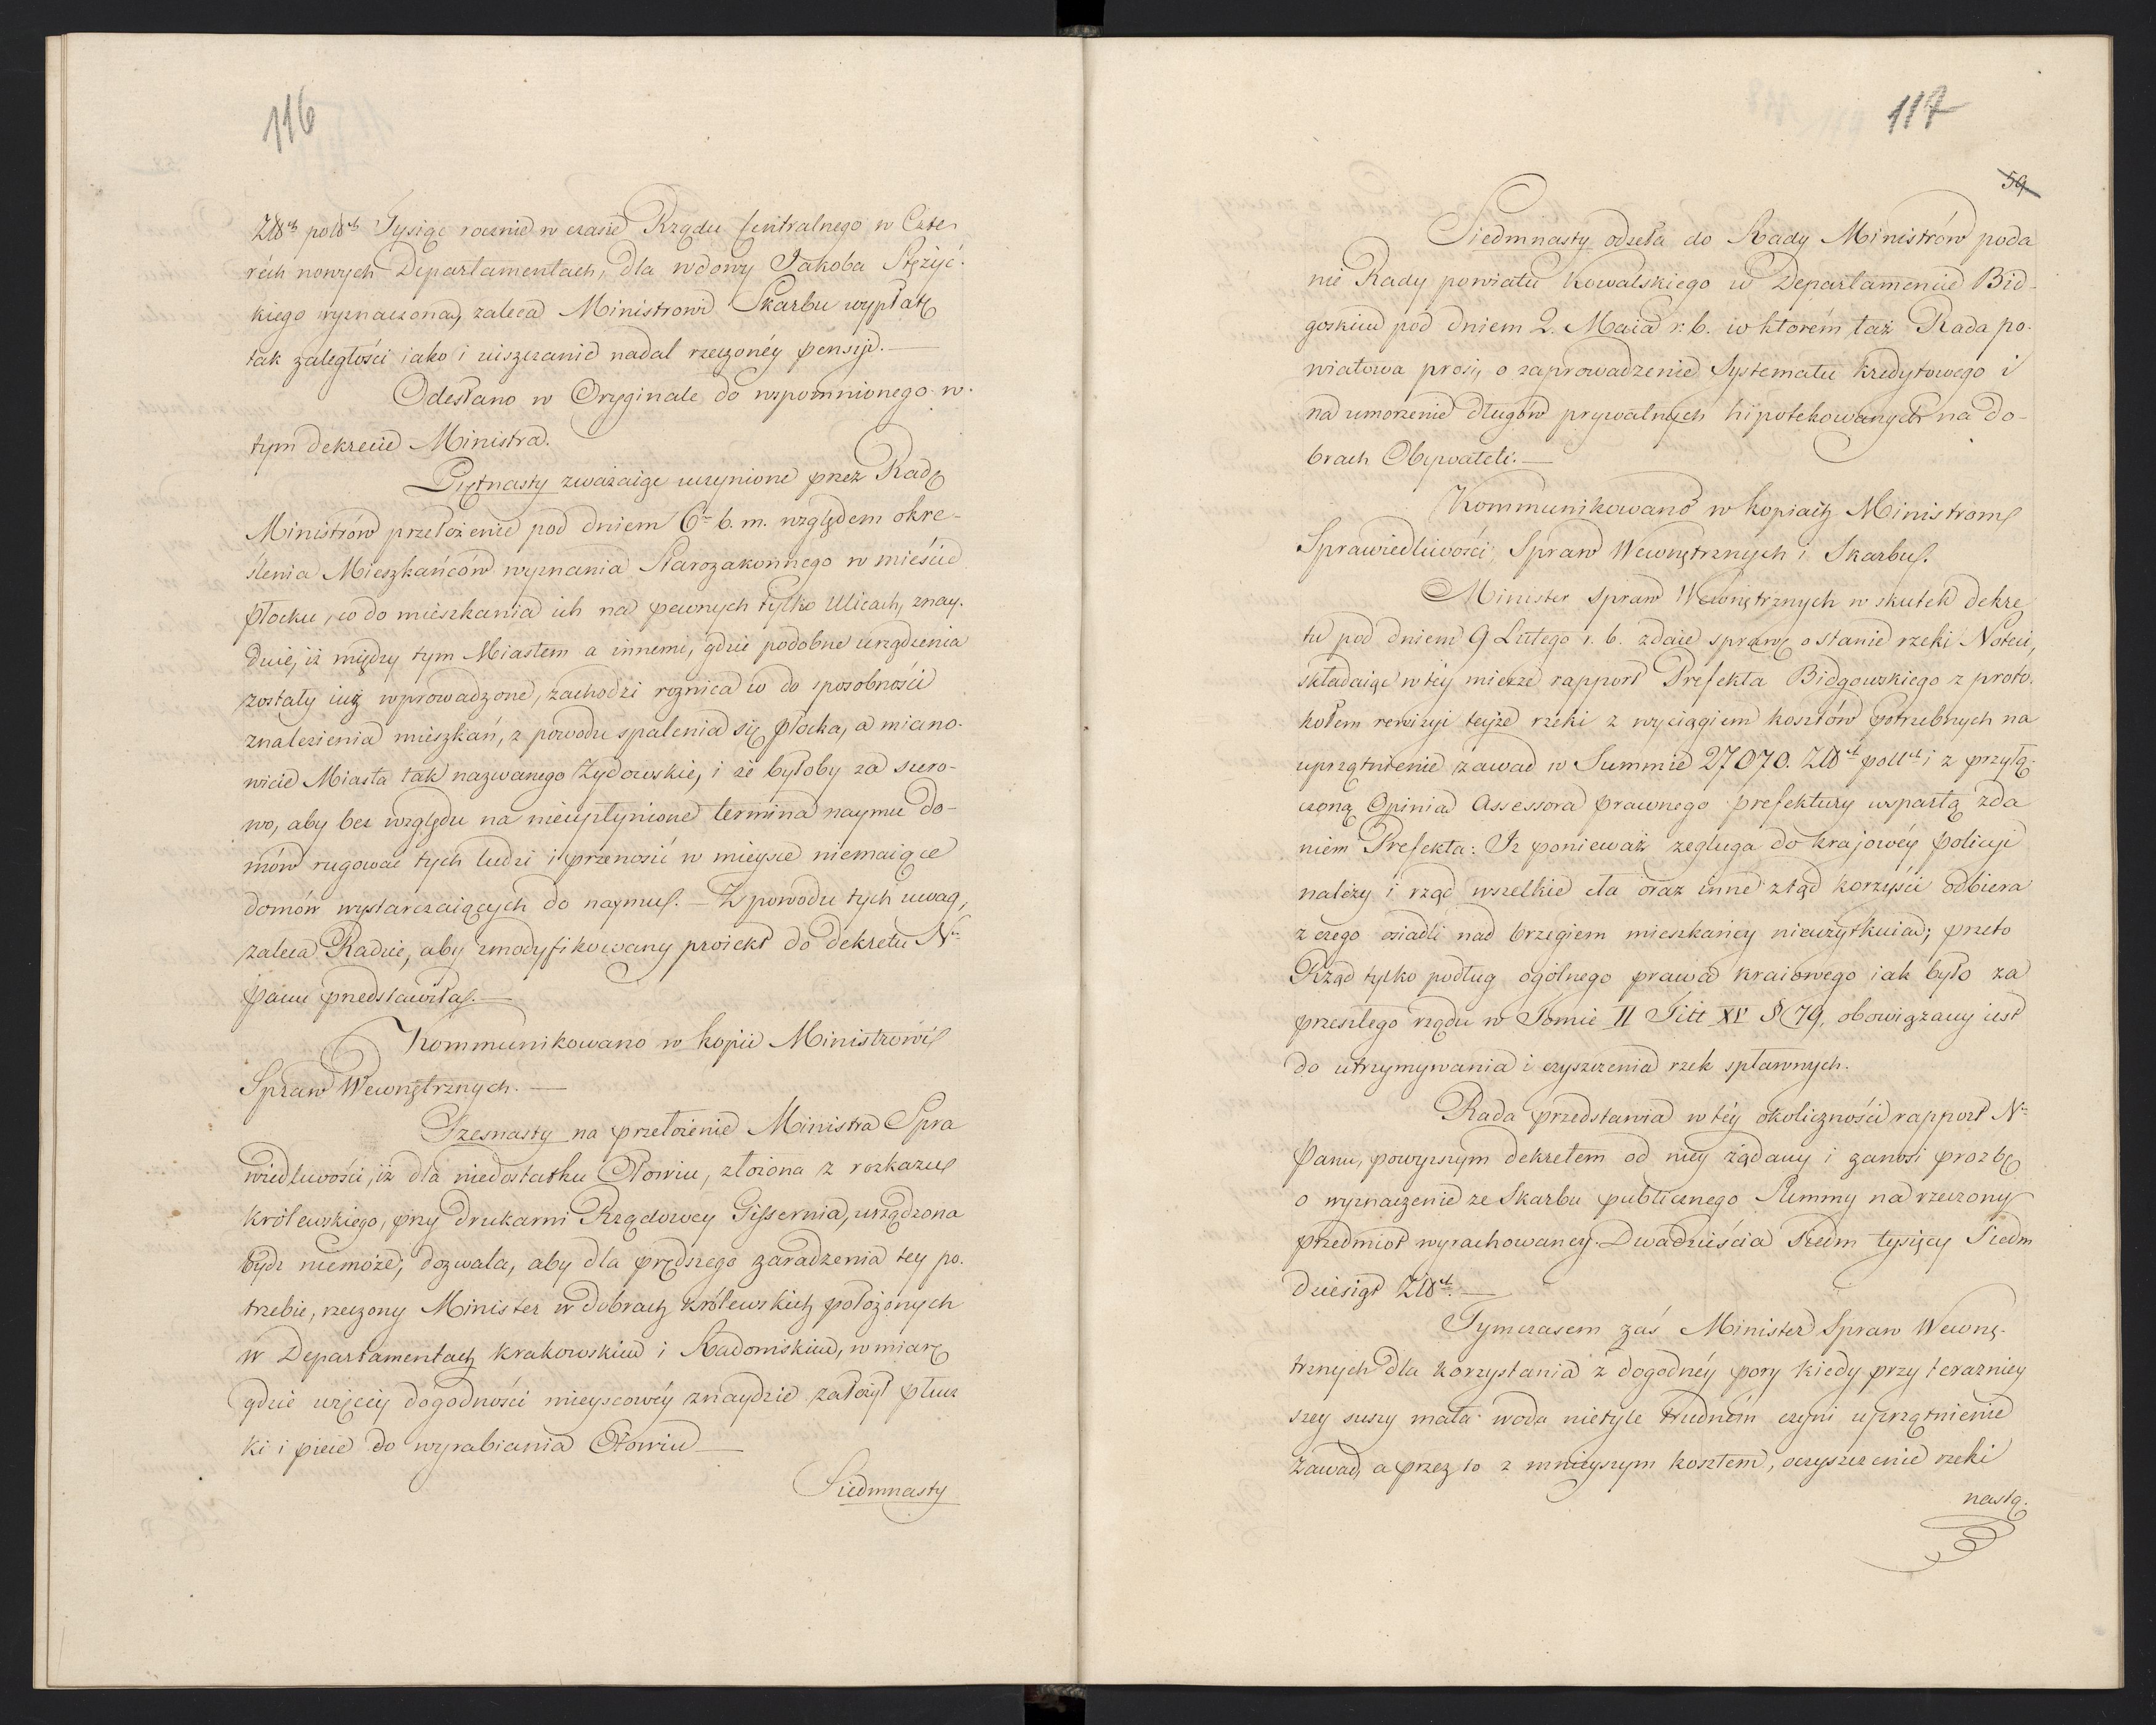 116
Złłch polłch Tysiąc rocznie w czasie Rządu Centralnego w Czte-
rech nowych Departamentach, dla wdowy Jakoba Stężyc-
kiego wyznaczoną, zaleca Ministrowi Skarbu wypłatę
tak zaległości iako i uiszczanie nadal rzeczonéy pensyi.—
Odesłano w Oryginale do wspomnionego w
tym dekrecie Ministra.
Piętnasty zważaiąc uczynione przez Radę
Ministrów przełożenie pod dniem 6. b. m. względem okre-
ślenia Mieszkańców wyznania Starozakonnego w mieście
Płocku, co do mieszkania ich na pewnych tylko Ulicach, znay-
duie, iż między tym Miastem a innemi, gdzie podobne urządzenia
zostały iuż wprowadzone, zachodzi roznica co do sposobności
znalezienia mieszkań, z powodu spalenia się Płocka, a miano-
wicie Miasta tak nazwanego Żydowskie, i że byłoby za suro-
wo, aby bez względu na nieupłynione termina naymu do-
mów rugować tych ludzi i przenosić w mieysce niemaiące
domów wystarczaiących do naymu. — Z powodu tych uwag,
zaleca Radzie, aby zmodyfikowany proiekt do dekretu N.
Panu przedstawiła.—
Kommunikowano w kopii Ministrowi
Spraw Wewnętrznych.—
Szesnasty na przełożenie Ministra Spra
wiedliwości, iż dla niedostatku Ołowiu, złożona z rozkazu
Królewskiego, przy drukarni Rządowey Gissernia, urządzona
bydź niemoże, dozwala, aby dla prędszego zaradzenia tey po-
trzebie, rzeczony Minister w dobrach Królewskich położonych
w Departamentach Krakowskim i Radomskim, w miarę
gdzie więcéy dogodności mieyscowéy znaydzie założył płucz
ki i piece do wyrabiania Ołowiu—
Siedmnasty
117
59
Siedmnasty odseła do Rady Ministrów poda
nie Rady powiatu Kowalskiego w Departamencie Bid-
goskim pod dniem 2. Maia r. b. w ktorém taż Rada po-
wiatowa prosi, o zaprowadzenie Systematu kredytowego i
na umorzenie długów prywatnych hipotekowanych na do-
brach Obywateli.—
Kommunikowano w kopiach Ministrom
Sprawiedliwości, Spraw Wewnętrznych i Skarbu.
Minister Spraw Wewnętrznych w skutek dekre
tu pod dniem 9 Lutego r. b. zdaie sprawę o stanie rzeki Noteci,
składaiąc w téy mierze rapport Prefekta Bidgowskiego z proto-
kołem rewizyi teyże rzeki z wyciągiem kosztów potrzebnych na
uprzątnienie zawad w Summie 27070. Złłch polłch i z przyłą-
czoną Opinią Assessora prawnego prefektury wspartą zda
niem Prefekta: Iż ponieważ zegluga do krajowéy policyi
należy i rząd wszelkie cła oraz inne ztąd korzyści odbiera
z czego osiadli nad brzegiem mieszkańcy nieużytkuią; przeto
Rząd tylko podług ogólnego prawa kraiowego iak było za
przeszłego rządu w Tomie II Titt XV § 79, obowiązany iest
do utrzymywania i czyszczenia rzek spławnych.
Rada przedstawia w téy okoliczności rapport N.
Panu, powyższym dekretem od niey żądany i zanosi prozbę
o wyznaczenie ze Skarbu publicznego Summy na rzeczony
przedmiot wyrachowaney Dwadzieścia Siedm tysięcy Siedm
dziesiąt Złłch.—
Tymczasem zaś Minister Spraw Wewnę-
trznych dla korzystania z dogodnéy pory kiedy przy terazniey
szey suszy mała woda nietyle trudném czyni uprzątnienie
zawad, a przez to z mnieyszym kosztem, oczyszczenie rzeki
nastą-